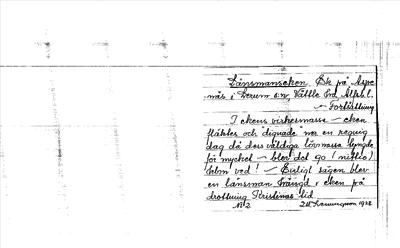 Länsmanseken. Ek på Aspe
näs i Lerum sn, Vättle hd, Älfsb. l.
— Fortsättning
I ekens virkesmassa — eken
fläktes och dignade ner en regnig
dag då dess väldiga lövmassa tyngde
för mycket — blev det 90 (nittio)
famn ved! — Enligt sägen blev
en länsman hängd i eken på
drottning Kristinas tid
No 2